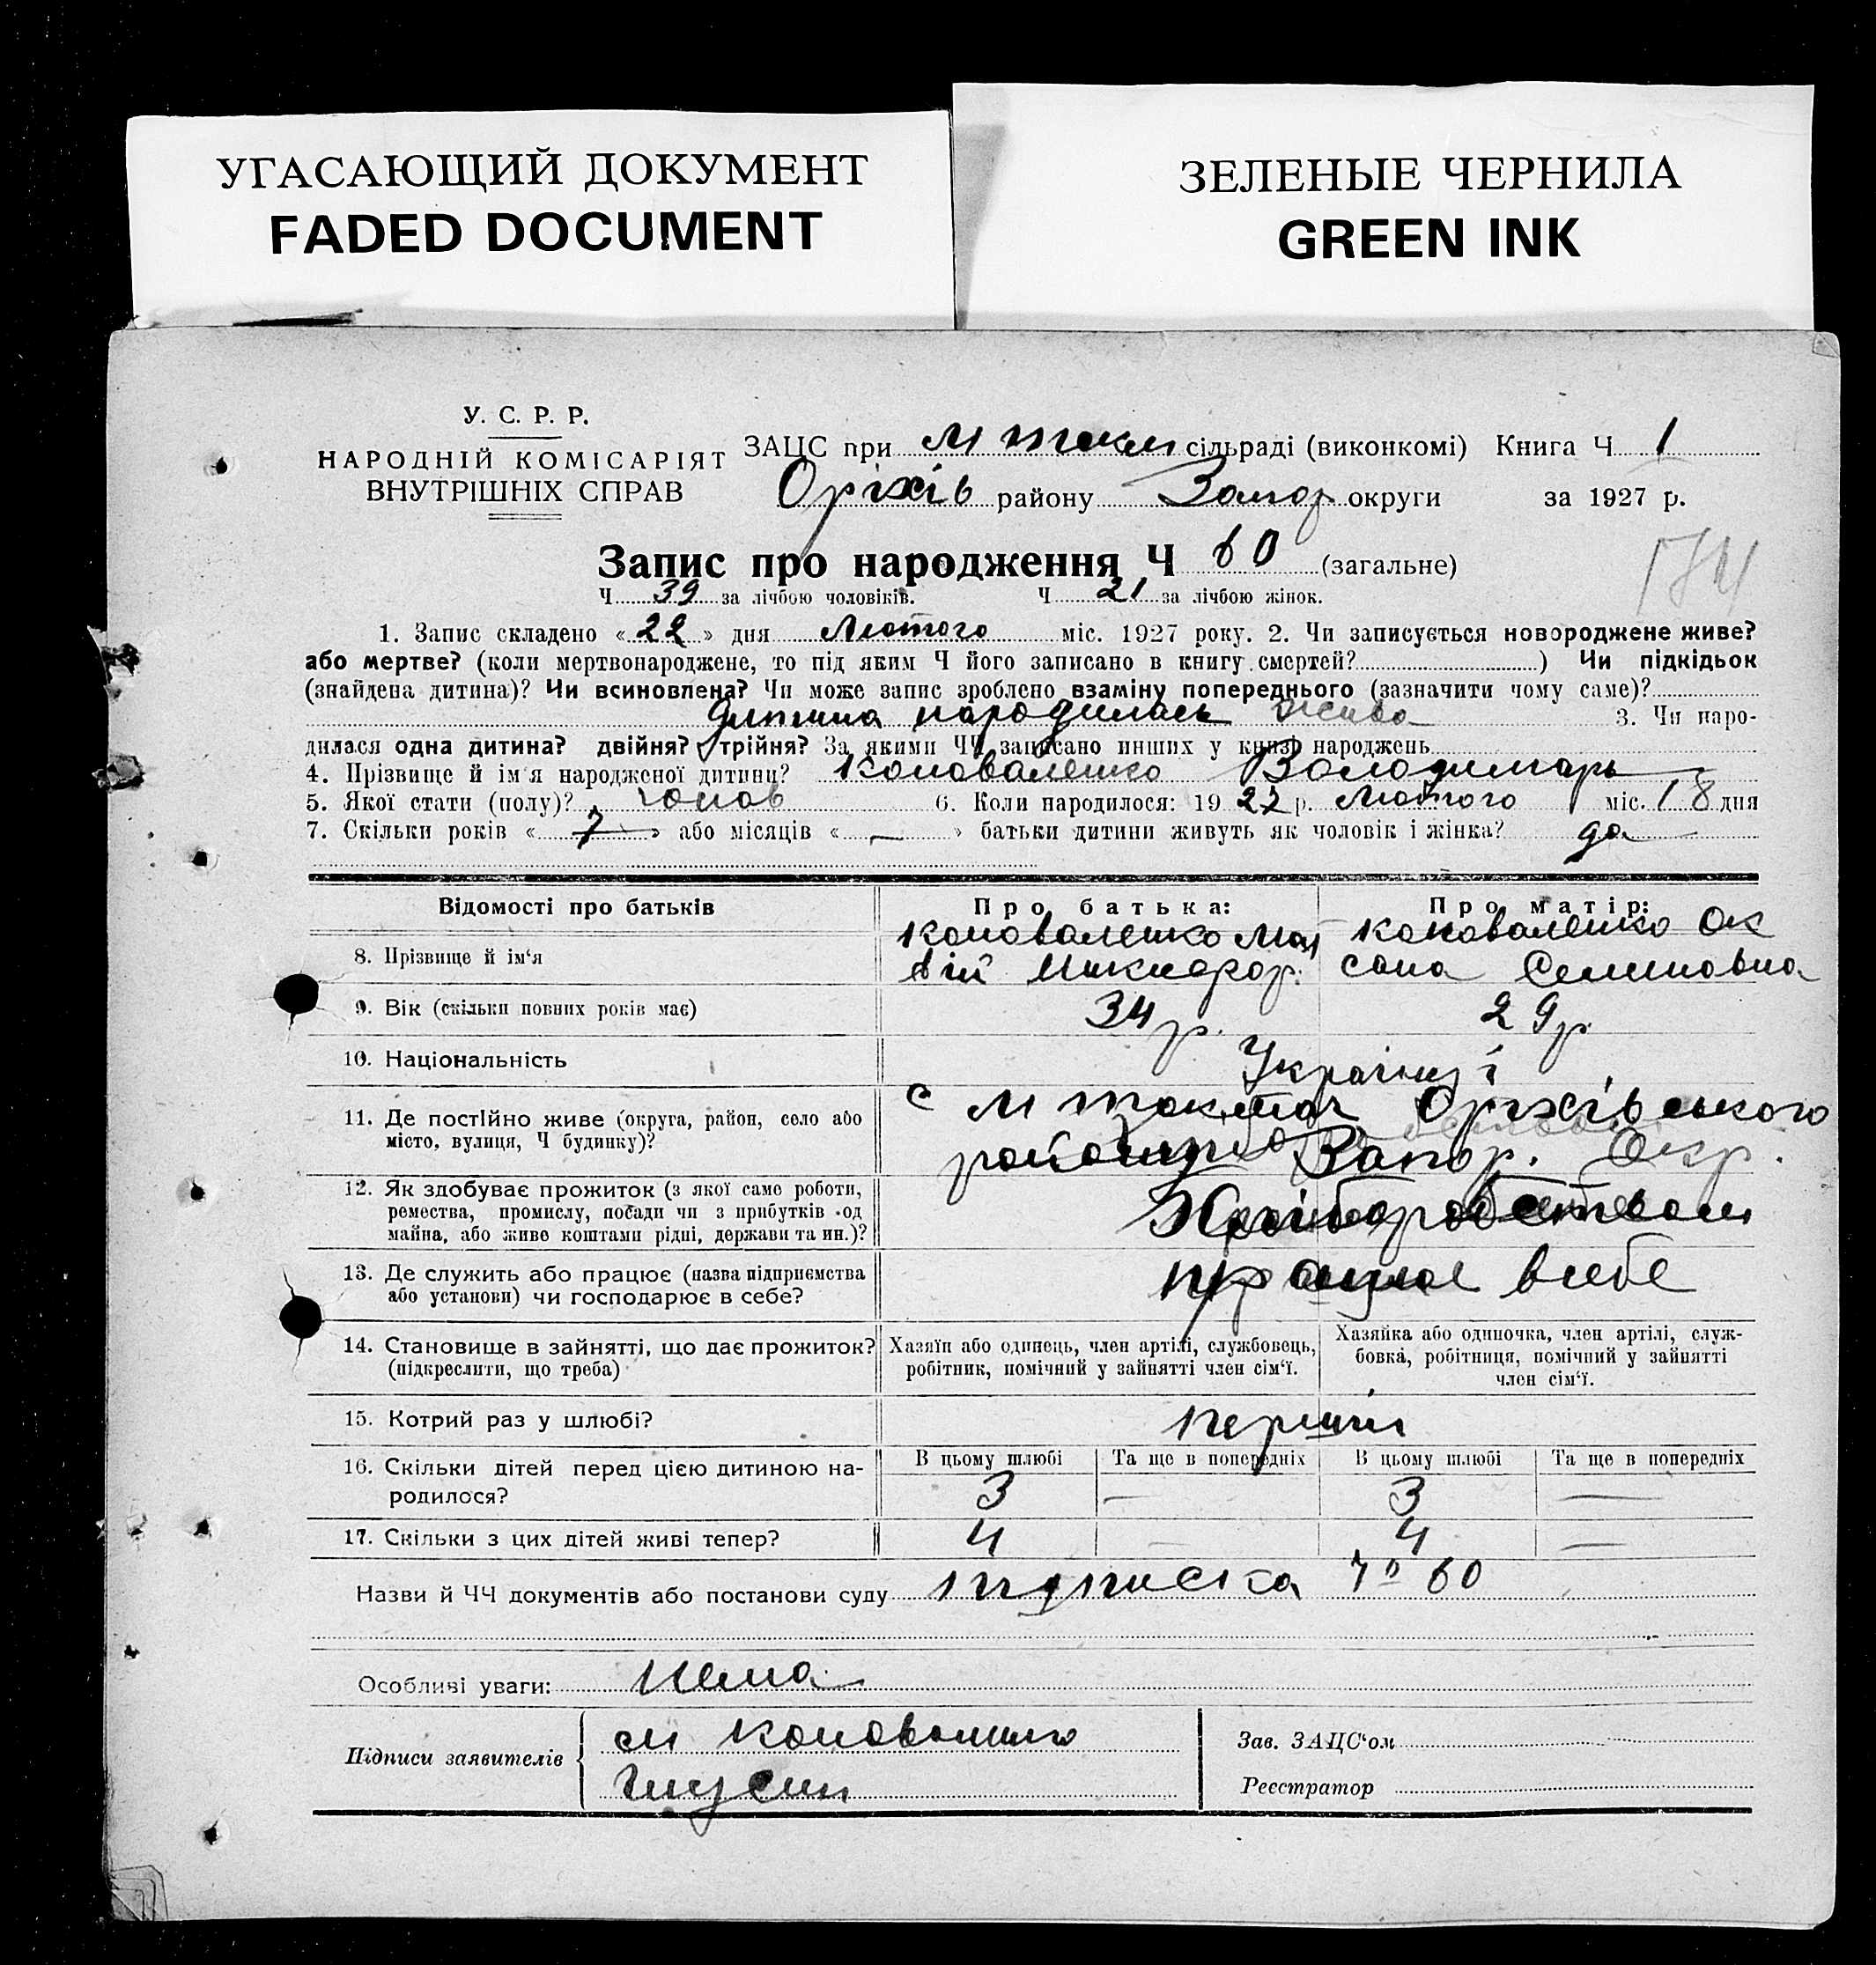 УГАСАЮЩИЙ ДОКУМЕНТ
FADED DOCUMENT
ЗЕЛЕНЫЕ ЧЕРНИЛА
GREEN INK
У. С. Р. Р.
НАРОДНІЙ КОМІСАРІЯТ
ВНУТРІШНІХ СПРАВ
ЗАЦС при М Токм сільраді (виконкомі) Книга Ч 1
Оріхів району Запор округи за 1927 р.
Запис про народження Ч 60 (загальне)
174
Ч 39 за лічбою чоловіків. Ч 21 за лічбою жінок.
1. Запис складено « 22 » дня Лютого міс. 1927 року. 2. Чи записується новороджене живе?
або мертве? (коли мертвонароджене, то під яким Ч його записано в книгу смертей? ) Чи підкідьок
(знайдена дитина)? Чи всиновлена? Чи може запис зроблено взаміну попереднього (зазначити чому саме)?
дитина народилась жива 3. Чи наро-
дилася одна дитина? двійня? трійня? За якими ЧЧ записано инших у книзі народжень
4. Прізвище й ім'я народженої дитини? Коноваленко Володимарь
5. Якої стати (полу)? чолов 6. Коли народилося: 19 27 р. Лютого міс. 18 дня
7. Скільки років « 7 » або місяців « — » батьки дитини живуть як чоловік і жінка? да
Відомості про батьків
Про батька:
Про матір:
8. Прізвище й ім'я
Коноваленко Мат
вій Никифор.
Коноваленко Ок
сана Семиновна
9. Вік (скільки повних років має)
34 р.
29 р.
10. Національність
Україниці
11. Де постійно живе (округа, район, село або
місто, вулиця, Ч будинку)?
с М Токмач Оріхівського
району Запор. Окр.
12. Як здобуває прожиток (з якої саме роботи,
ремества, промислу, посади чи з прибутків од
майна, або живе коштами рідні, держави та ин.)?
Хліборобством
13. Де служить або працює (назва підприємства
або установи) чи господарює в себе?
працює всебе
14. Становище в зайнятті, що дає прожиток?
(підкреслити, що треба)
Хазяїн або одинець, член артілі, службовець,
робітник, помічний у зайнятті член сім'ї.
Хазяйка або одиночка, член артілі, служ-
бовка, робітниця, помічний у зайнятті
член сім'ї.
15. Котрий раз у шлюбі?
перший
16. Скільки дітей перед цією дитиною на-
родилося?
В цьому шлюбі Та ще в попередніх В цьому шлюбі Та ще в попередніх
3 — 3 —
17. Скільки з цих дітей живі тепер?
4 — 4 —
Назви й ЧЧ документів або постанови суду підписка 60
Особливі уваги: Нема
Підписи заявителів
М Коноваленко
Зав. ЗАЦС'ом
Реєстратор